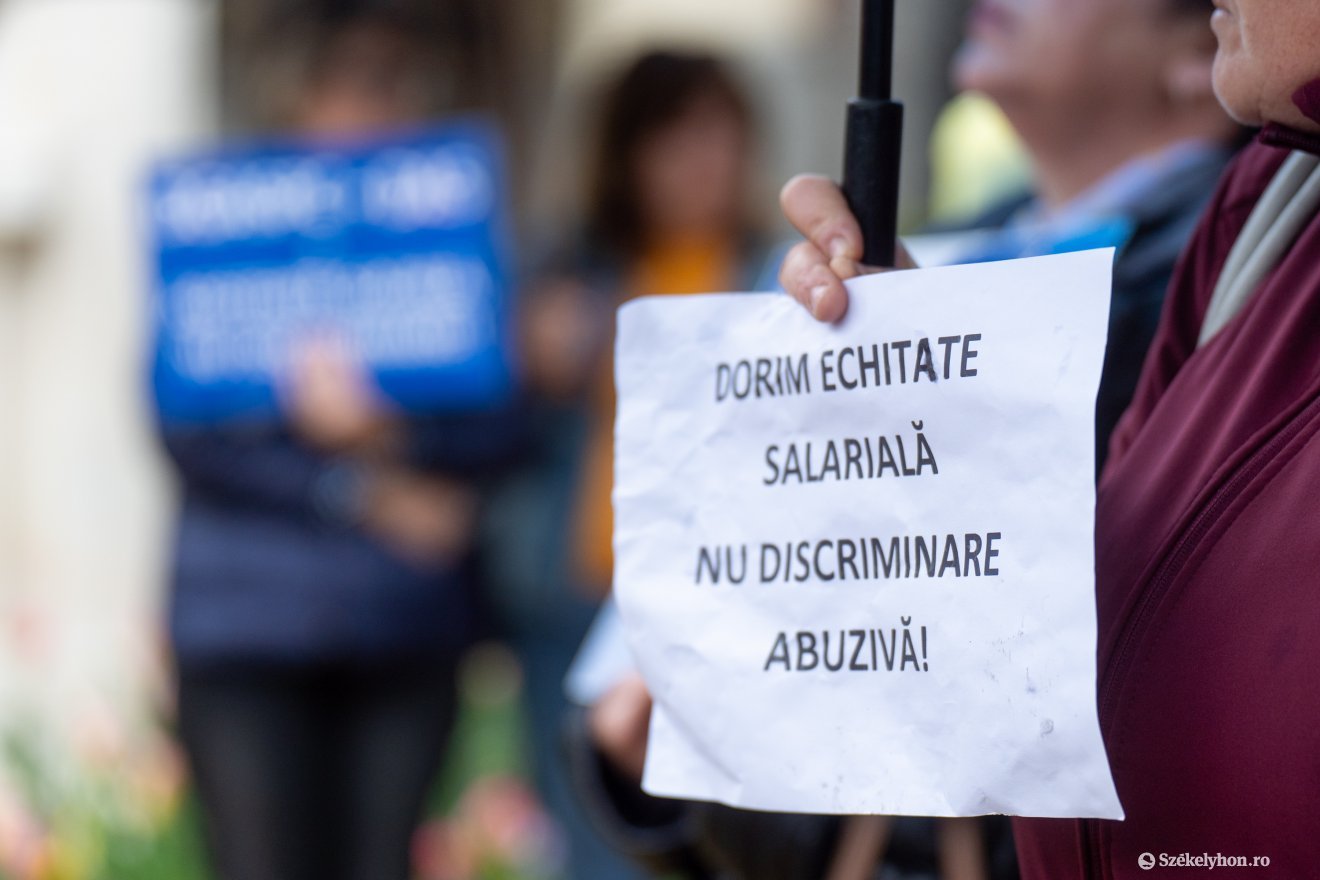 DORIM ECHITATE
SALARIALĂ
NU DISCRIMINARE
ABUZIVĂ!
Székelyhon.ro